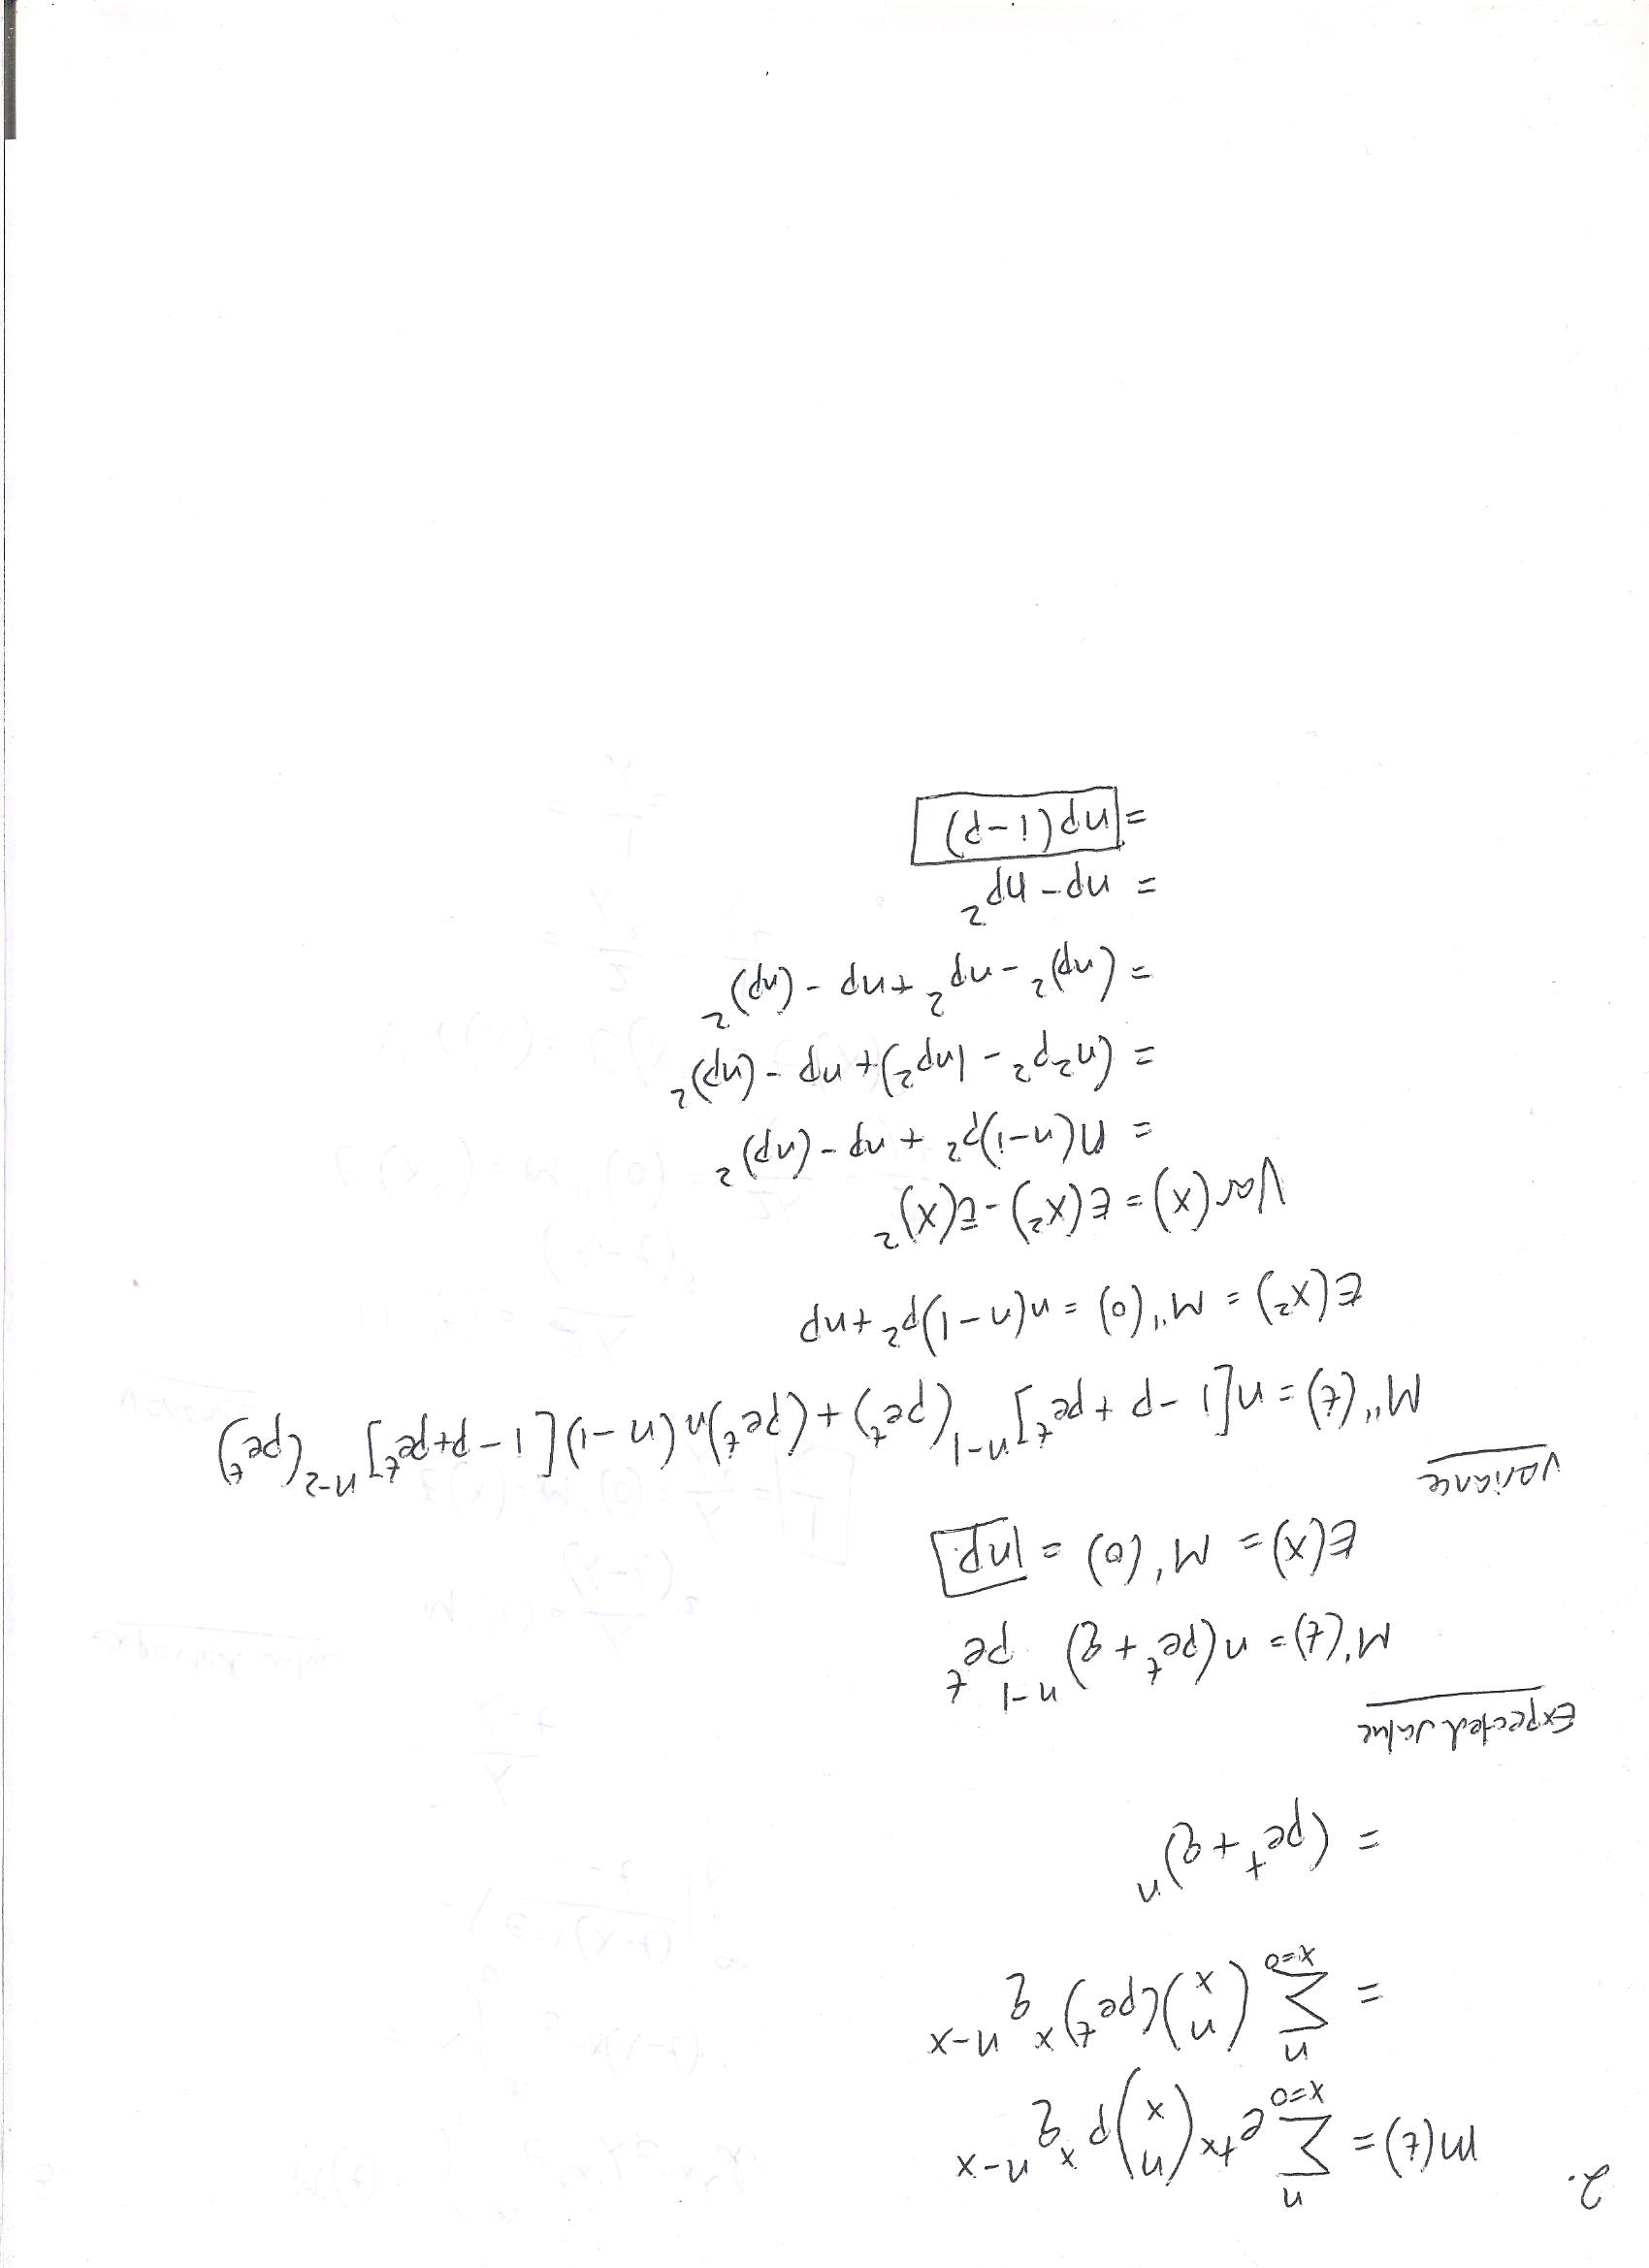 2.
m(t) = Σ_{x=0}^{n} e^{tx} (n x) p^x q^{n-x}
= Σ_{x=0}^{n} (n x) (pe^t)^x q^{n-x}
= (pe^t + q)^n
Expected value
M'(t) = n(pe^t + q)^{n-1} pe^t
E(X) = M'(0) = np.
variance
M''(t) = n[1-p+pe^t]^{n-1}(pe^t) + (pe^t)n(n-1)[1-p+pe^t]^{n-2}(pe^t)
E(x²) = M''(0) = n(n-1)p² + np
Var(x) = E(X²) - E(X)²
= n(n-1)p² + np - (np)²
= (n²p² - 1np²) + np - (np)²
= (np)² - np² + np - (np)²
= np - np²
= np(1-p)